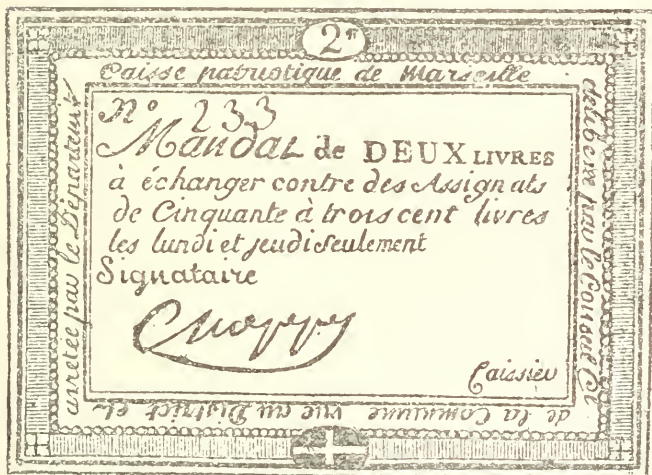 2tt
Caisse patriotique de Marseille
délibéré par le Conseil Gl
de la Commune vue au District et
arretée par le Département
No 233
Mandat de DEUX LIVRES
à échanger contre des Assignats
de Cinquante à trois cent livres
les lundi et jeudi seulement
Signataire
Caissier